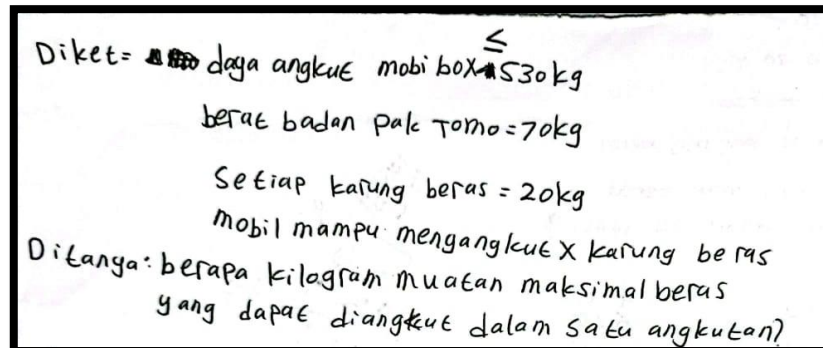 Diket= daya angkut mobi box ≤ 530 kg
berat badan pak Tomo = 70kg
Setiap karung beras = 20kg
mobil mampu mengangkut x karung beras
Ditanya: berapa kilogram muatan maksimal beras
yang dapat diangkut dalam satu angkutan?